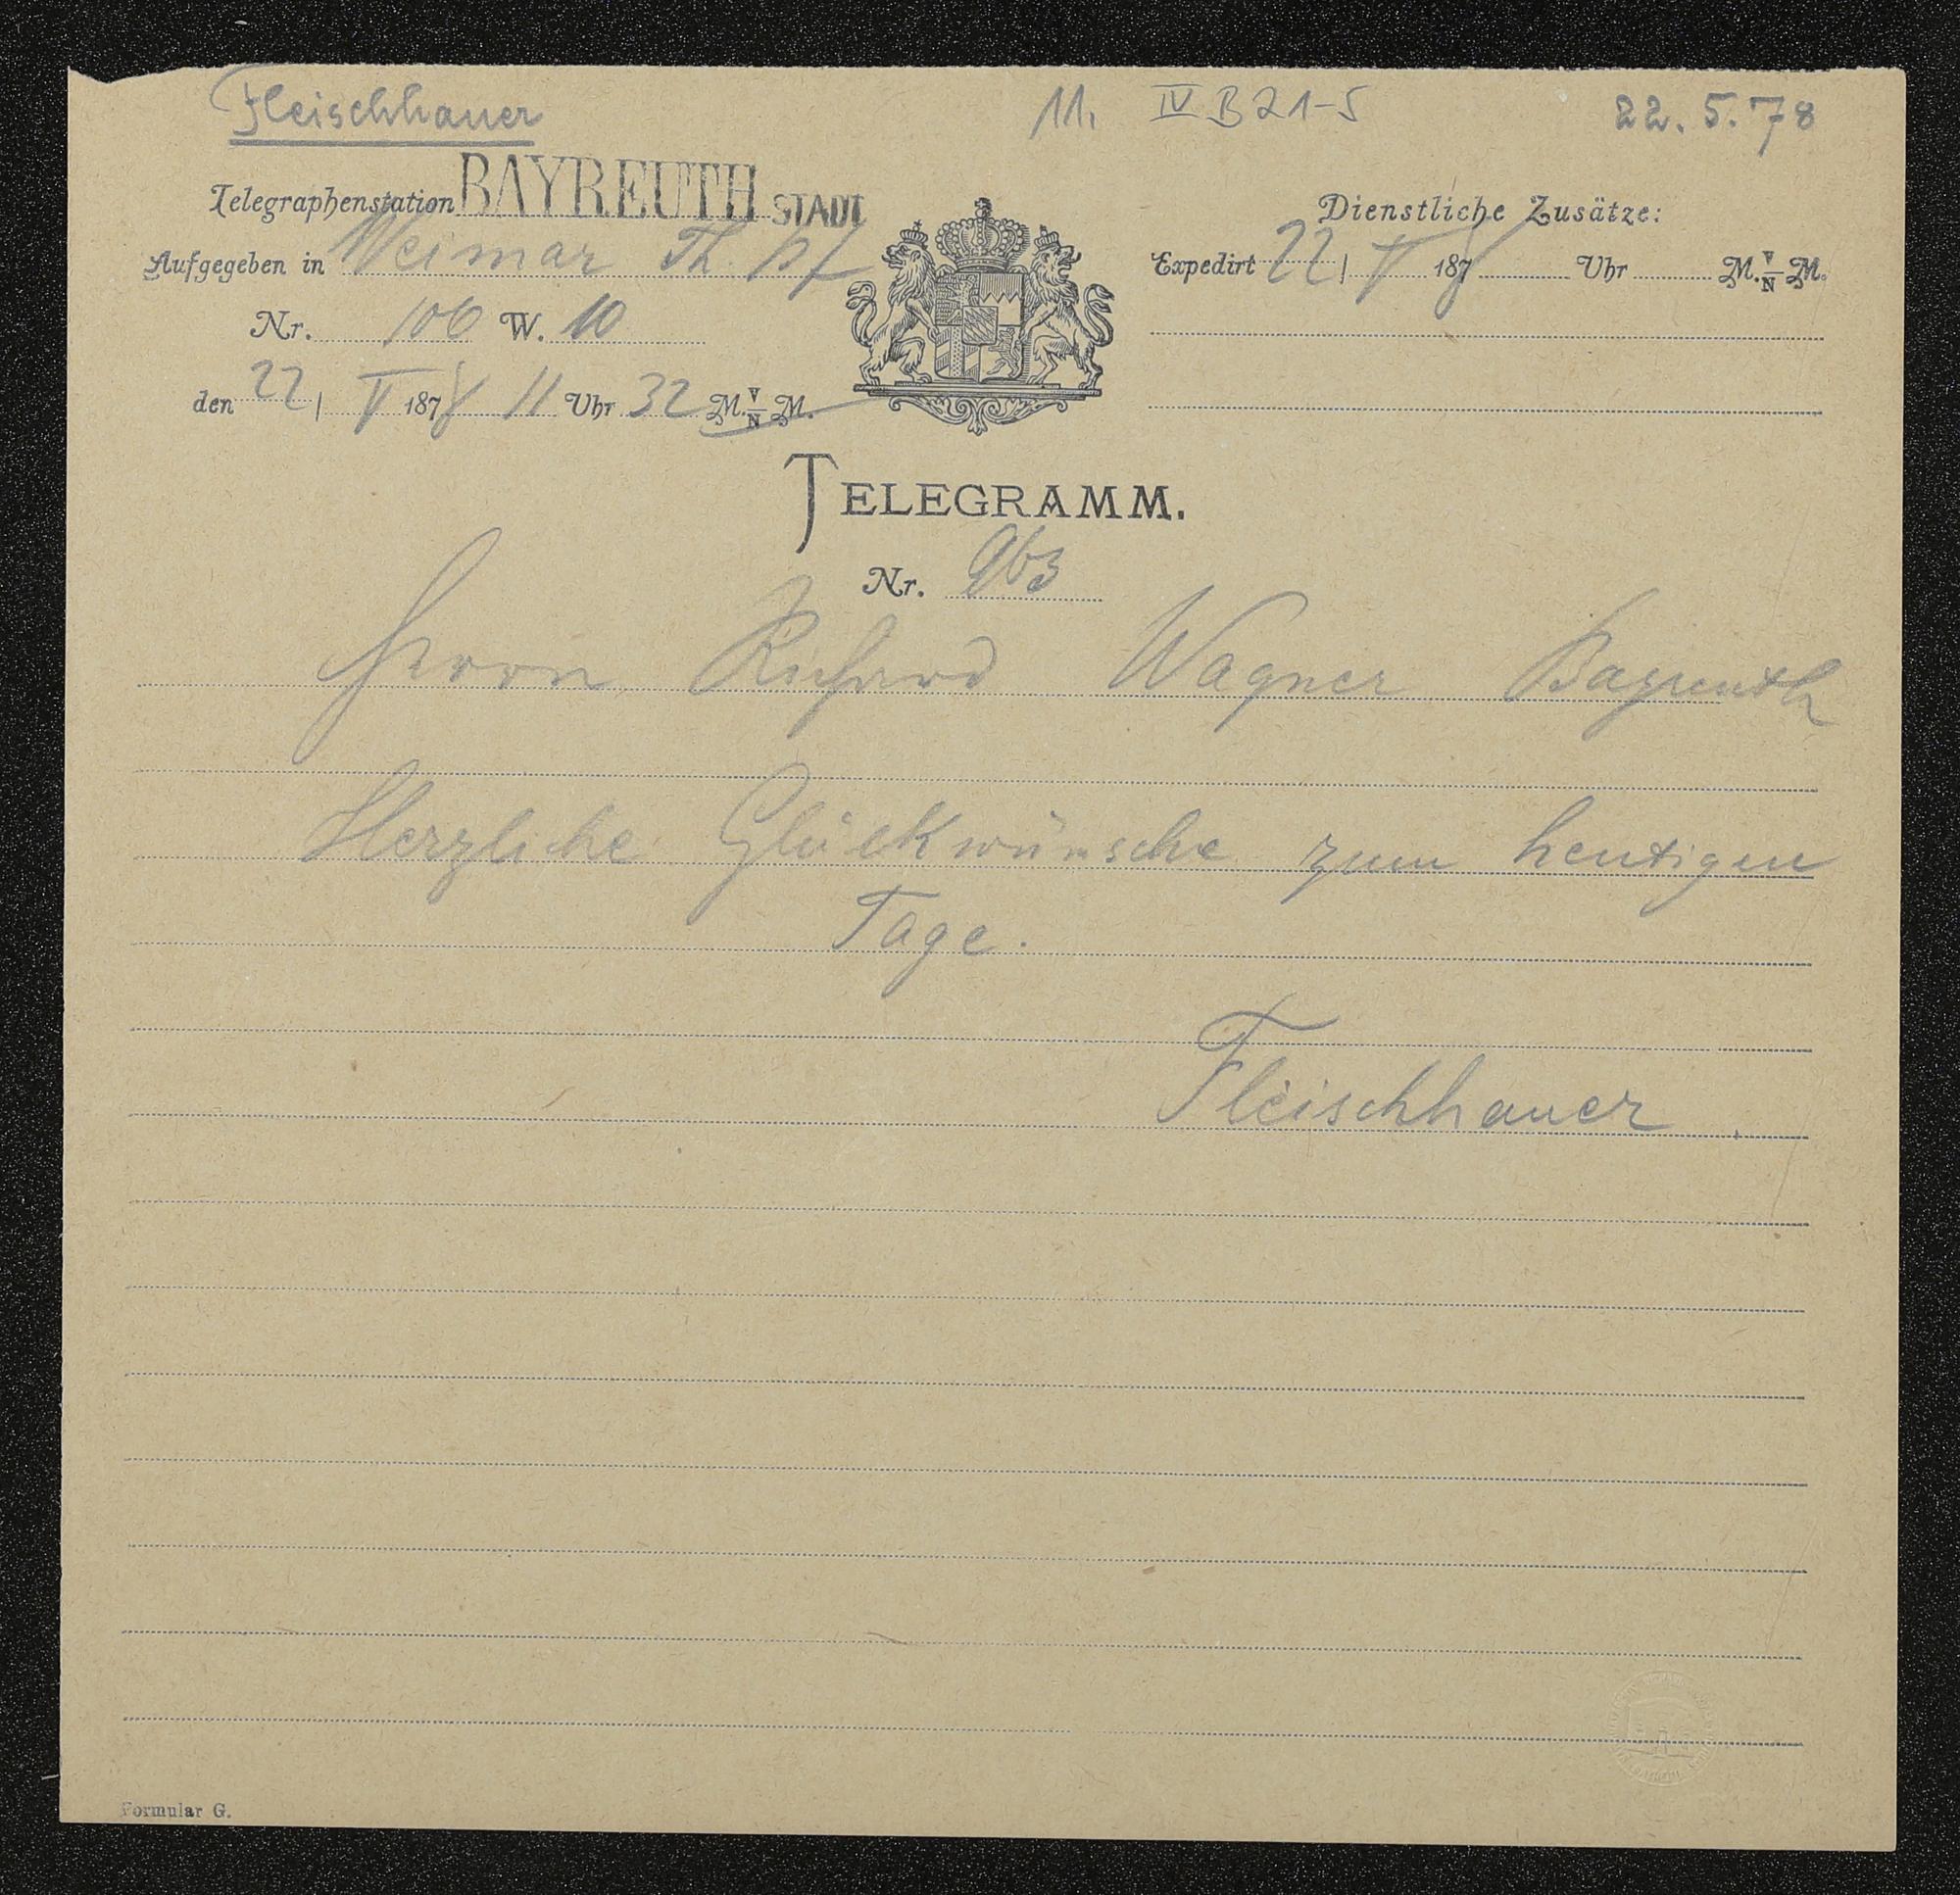 Fleischhauer
11. IV B 21-5
22. 5. 78
Telegraphenstation BAYREUTH STADT
Aufgegeben in Weimar Th. Bf
Nr. 106 W. 10
den 22/V 1878 11 Uhr 32 M. V/N M.
Dienstliche Zusätze:
Expedirt 22/V 1878 Uhr M. V/N M.
TELEGRAMM.
Nr. 963
Herrn Richard Wagner Bayreuth
Herzliche Glückwünsche zum heutigen
Tage.
Fleischhauer.
Formular G.